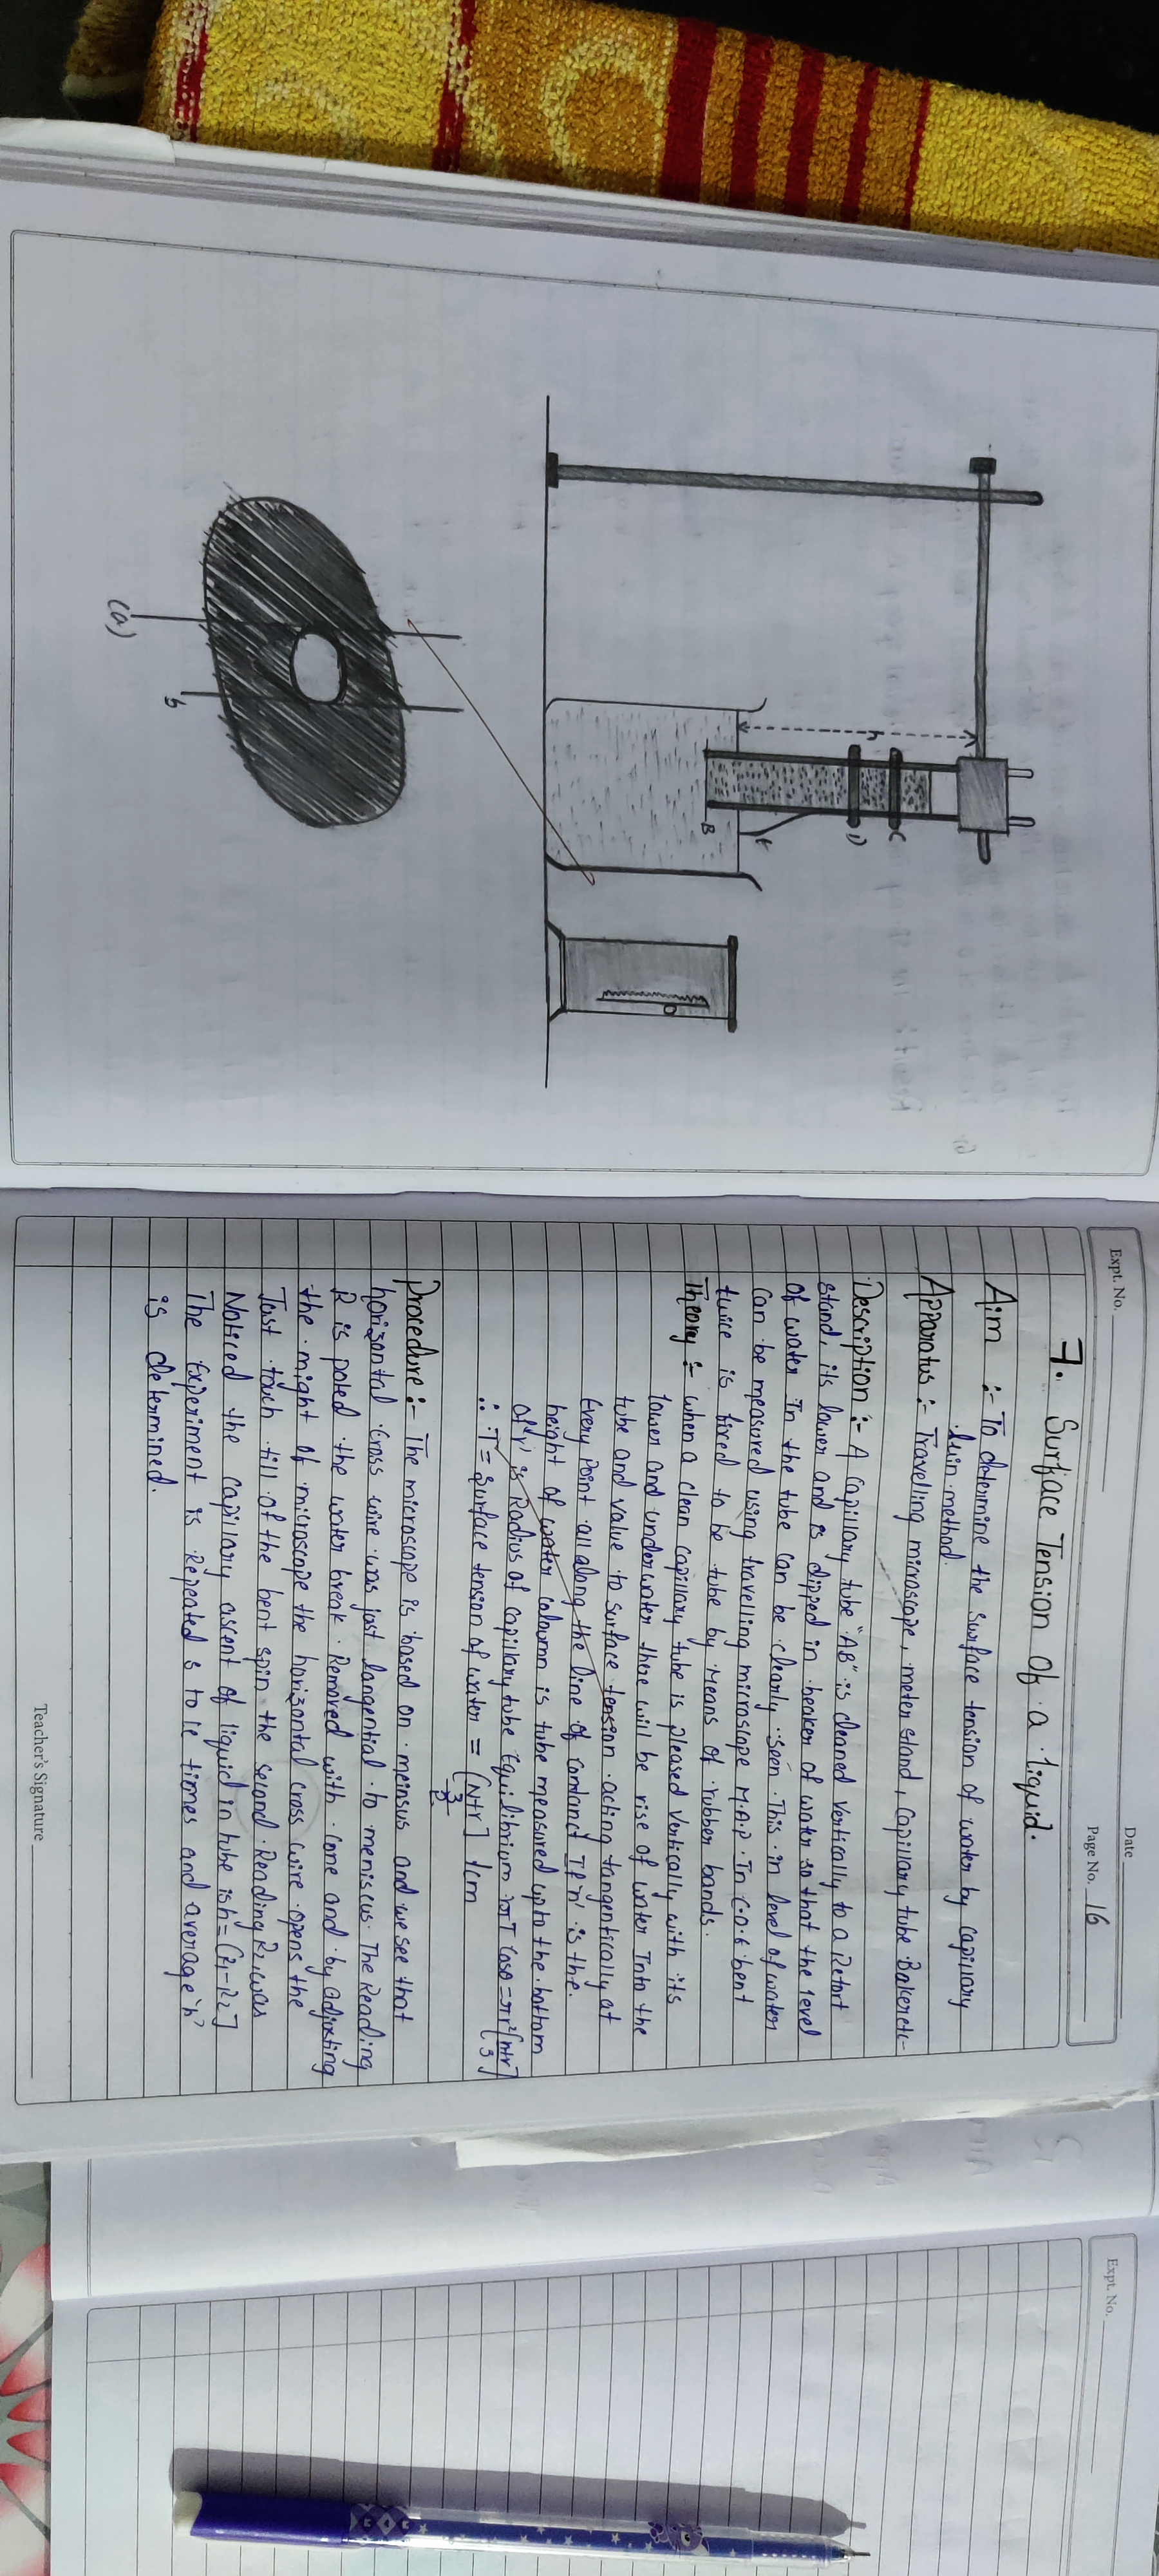 h
C
D
t
B
(a)
b
Expt. No.
Date
Page No. 16
7. Surface Tension of a liquid.
Aim :- To determine the surface tension of water by capillary
method.
Apparatus :- Travelling microscope, meter stand, capillary tube Baker etc-
Description :- A capillary tube "AB" is cleaned vertically to a Retort
stand, its lower and is dipped in beaker of water so that the level
of water In the tube can be clearly seen. This in level of water
can be measured using travelling microslope M.A.P. In bent
twice is fixed to be tube by means of rubber bands.
Theory :- when a clean capillary tube is pleased vertically with its
lower and under water there will be rise of water Into the
tube and value to surface tension acting tangentically at
Every point all along the line of contanct If 'n' is the.
height of water column is tube measured upto the bottom
of 'r' is Radius of capillary tube Equilibrium
∴ T = Surface tension of water =
Procedure :- The microscope is based on meinsus and we see that
horizontal Cross wire was just tangential to meniscus The Reading
R is poted the water break. Removed with cone and by adjusting
the might of microscope the horizontal cross wire opens the
Just touch till of the bent spin the second Reading R, was
Noticed the capillary ascent of liquid in tube is h = (R1-R2]
The Experiment is Repeated s to le times and average 'h'
is determined.
Teacher's Signature
Expt. No.